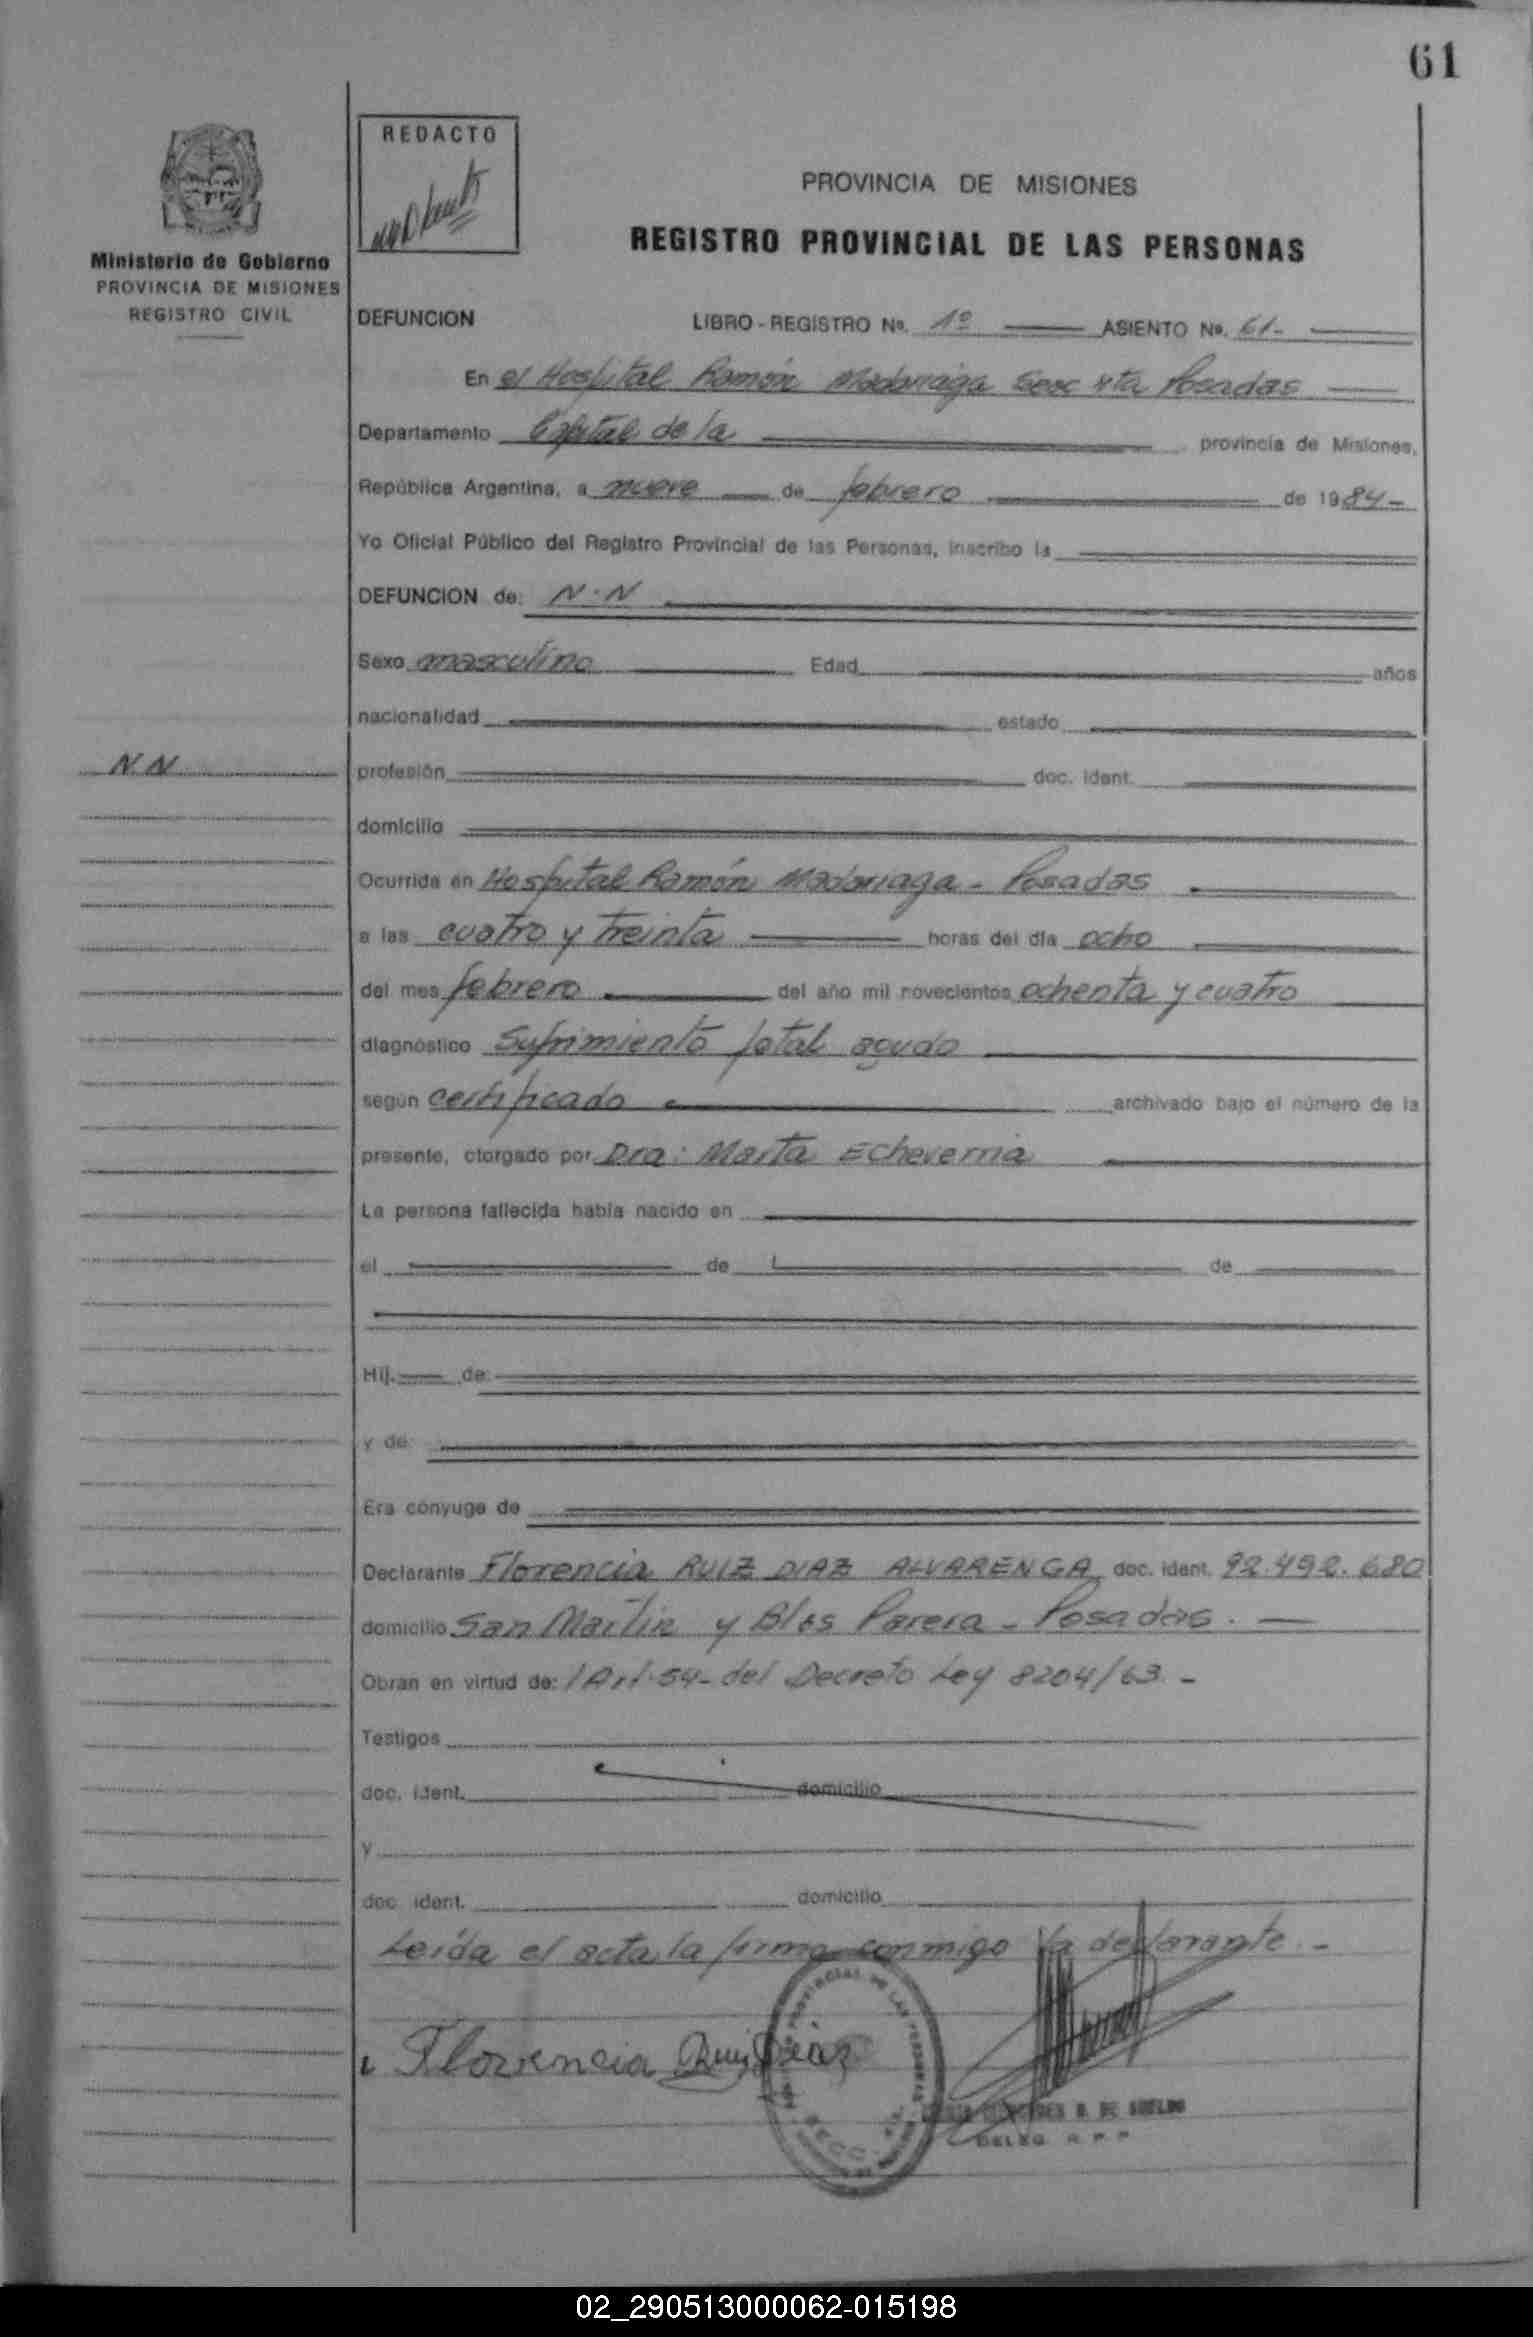 61
REDACTO
PROVINCIA DE MISIONES
REGISTRO PROVINCIAL DE LAS PERSONAS
Ministerio de Gobierno
PROVINCIA DE MISIONES
REGISTRO CIVIL
DEFUNCION LIBRO-REGISTRO Nº. 1º ASIENTO Nº. 61-
En el Hospital Ramón Madariaga Secc 4ta Posadas
Departamento Capital de la provincia de Misiones,
República Argentina, a nueve de febrero de 1984-
Yo Oficial Público del Registro Provincial de las Personas, inscribo la
DEFUNCION de: N.N
Sexo masculino Edad años
nacionalidad estado
N.N
profesión doc. ident.
domicilio
Ocurrida en Hospital Ramón Madariaga - Posadas
a las cuatro y treinta horas del día ocho
del mes febrero del año mil novecientos ochenta y cuatro
diagnóstico Sufrimiento fetal agudo
según certificado archivado bajo el número de la
presente, otorgado por Dra: Marta Echeverria
La persona fallecida había nacido en
el de de
Hij. de:
y de:
Era cónyuge de
Declarante Florencia RUIZ DIAZ ALVARENGA doc. ident. 92.492.680
domicilio San Martin y Blas Parera - Posadas.
Obran en virtud de: /Art. 54- del Decreto Ley 8204/63.-
Testigos
doc. ident. domicilio
y
doc. ident. domicilio
Leída el acta la firma conmigo la declarante.-
Florencia Ruiz Diaz
DE LAS PERSONAS
SECC.
DELEG. R. P. P.
02_290513000062-015198